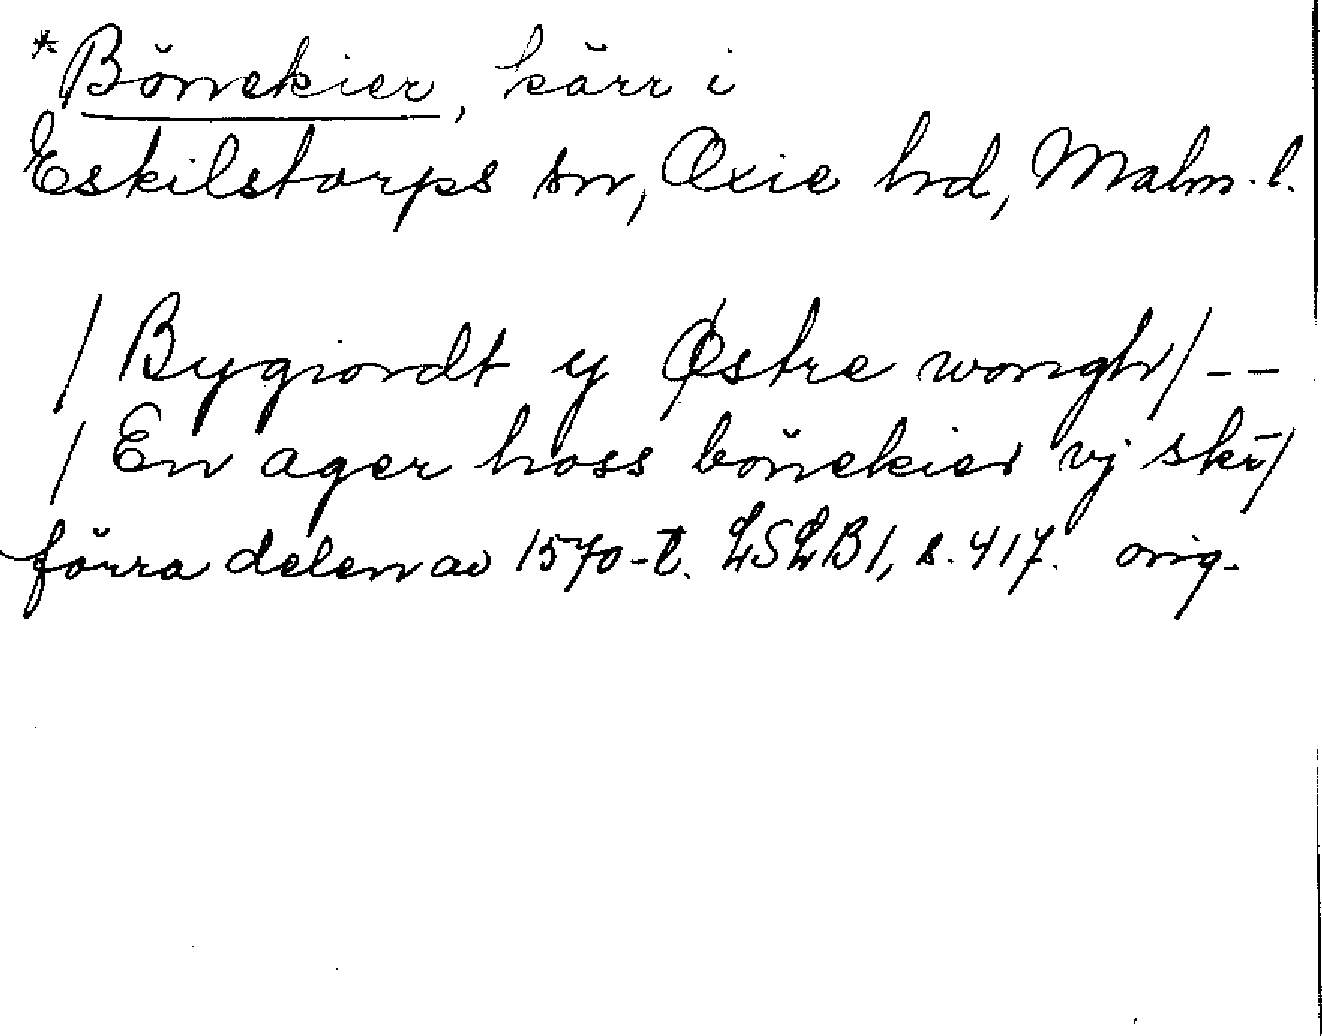 *Bönekier, kärr i
Eskilstorps sn, Oxie hd, Malm. l.
/ Bygiordt y Østre wongh / --
/ En ager hoss bönekier vj skr /
förra delen av 1570-t. LSLB 1, s. 417. orig.